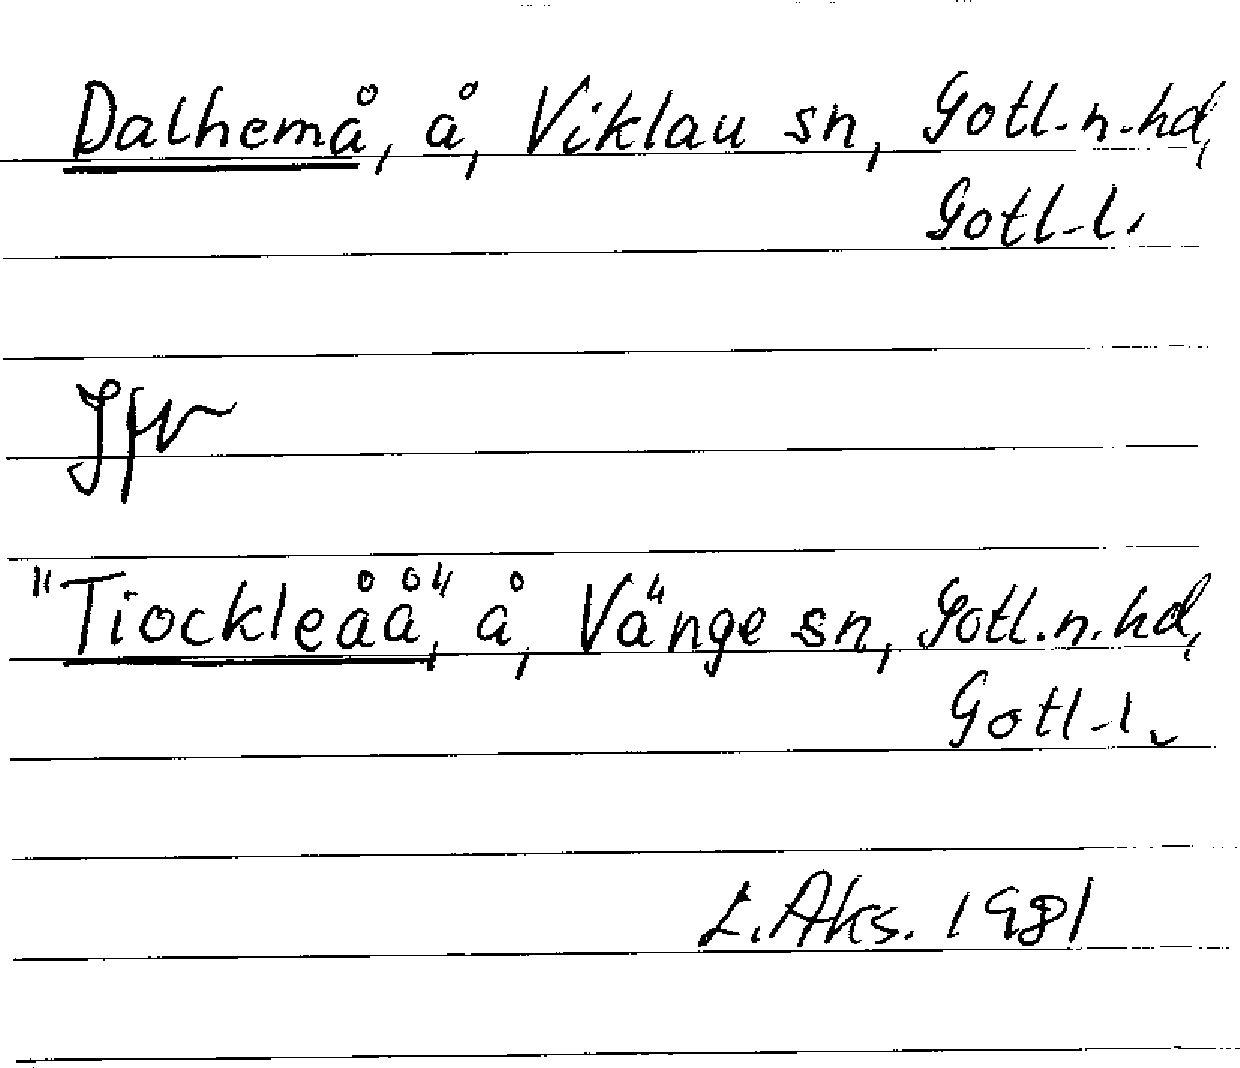 Dalhemå, å, Viklau sn, Gotl.n.hd,
Gotl.l.
Jfr
"Tiockleåå", å, Vänge sn, Gotl.n.hd,
Gotl.l.
L.Aks. 1981